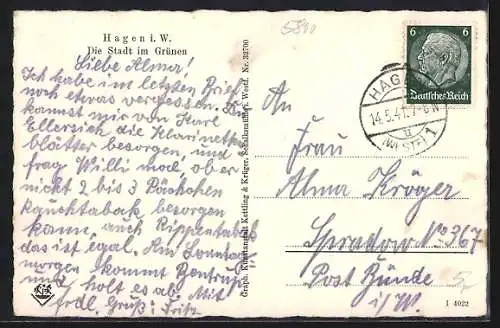 Hagen i. W.
Die Stadt im Grünen
Liebe Alma!
Ich habe im letzten Brief
noch etwas vergessen. Du
kannst mir von Karl
Ellersiek die Klarinett-
blätter besorgen, und
frag Willi mal, ob er
nicht 2 bis 3 Päckchen
Kautabak besorgen
kann, auch Rippentabak
das ist egal. Am Sonntag
morgen kommt
und holt es ab. Mit
frdl. Gruß: Fritz
Graph. Kunstanstalt Kettling & Krüger, Schalksmühle i. Westf. Nr. 32700
5890
6 6
Deutsches Reich
HAGEN
14.5.41.7-8 N
(WESTF) 1
An
Frau
Alma Kröger
Spradow No 367
Post Bünde
i/W.
I 4022